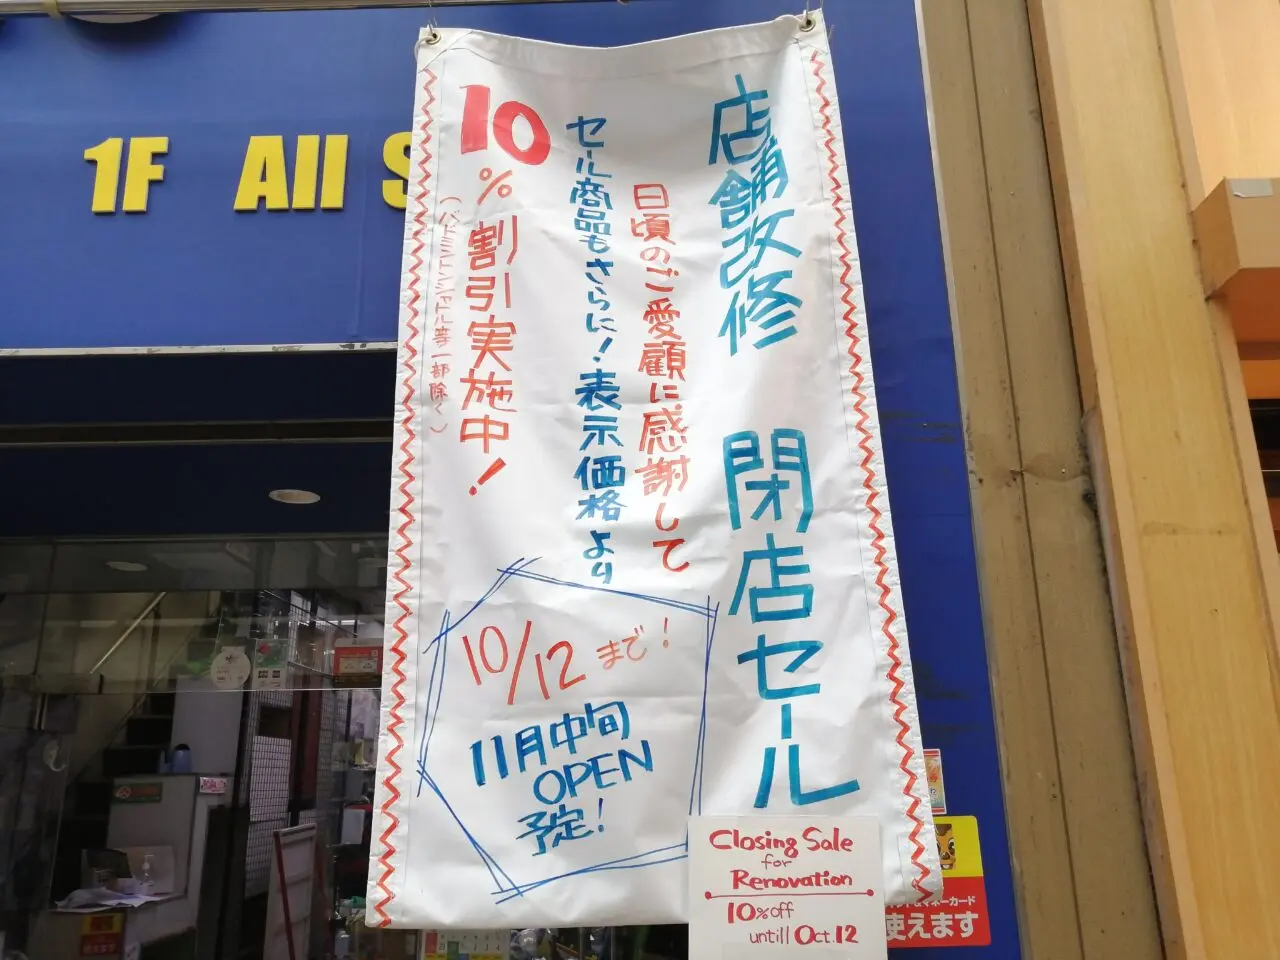 1F All S
店舗改修 閉店セール
日頃のご愛顧に感謝して
セール商品もさらに！表示価格より
10%割引実施中！
（バドミントンシャトル等一部除く）
10/12まで！
11月中旬
OPEN
予定！
Closing Sale
for
Renovation
10%off
untill Oct.12
マネーカード
使えます